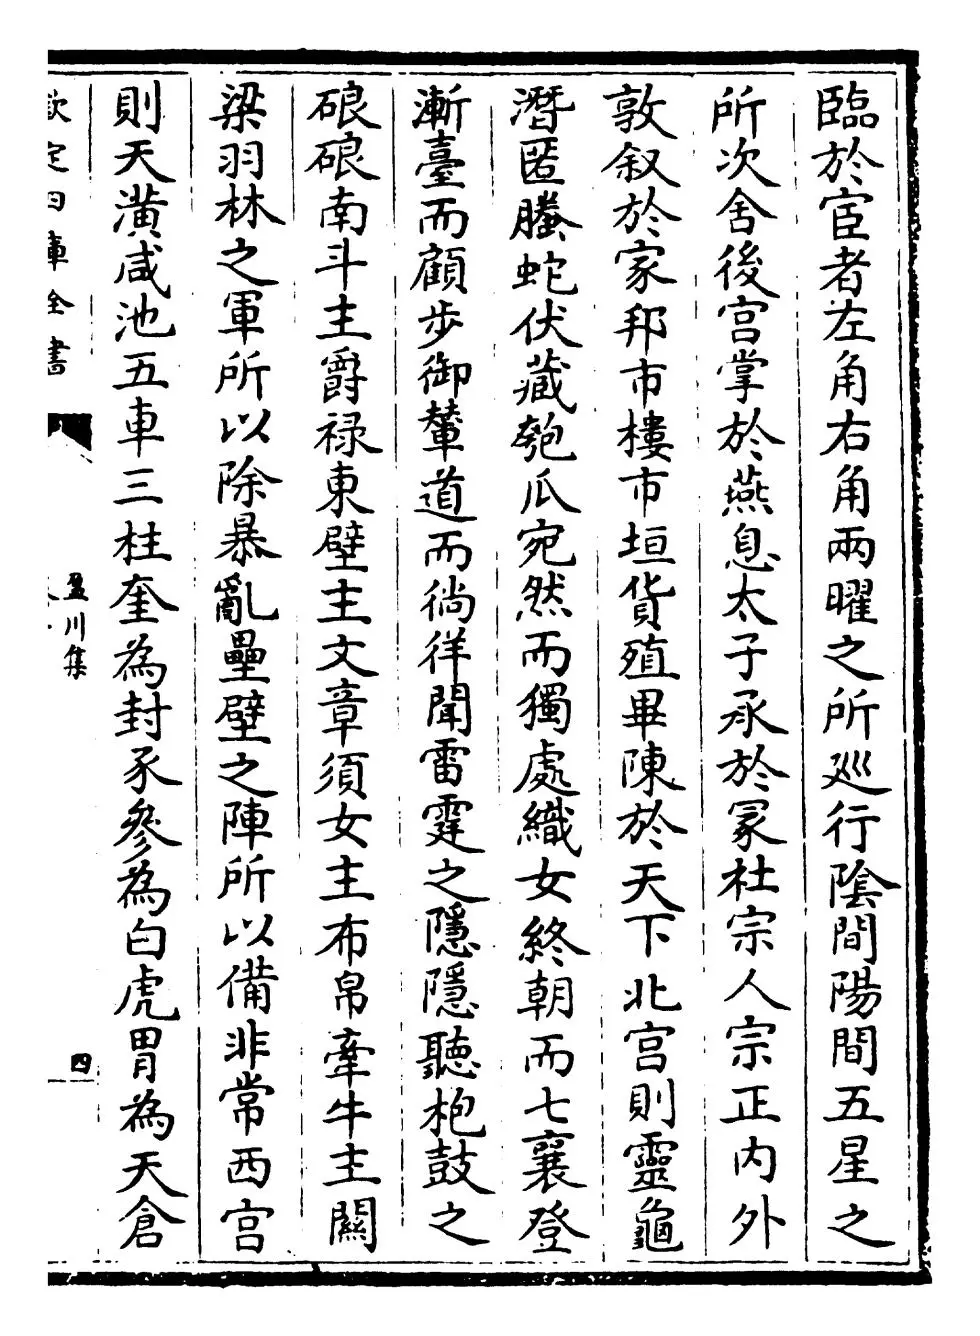 臨於宦者左角右角兩曜之所巡行陰間陽間五星之
所次舍後宫掌於燕息太子承於冡杜宗人宗正内外
敦叙於家邦市樓市垣貨殖畢陳於天下北宫則靈龜
潛匿螣蛇伏藏匏瓜宛然而獨處織女終朝而七襄登
漸臺而顧步御輦道而徜徉聞雷霆之隱隱聽枹鼓之
硠硠南斗主爵禄東壁主文章須女主布帛牽牛主關
梁羽林之軍所以除暴亂壘壁之陣所以備非常西宫
則天潢咸池五車三柱奎為封豕參為白虎胃為天倉
欽定四庫全書
盈川集
四